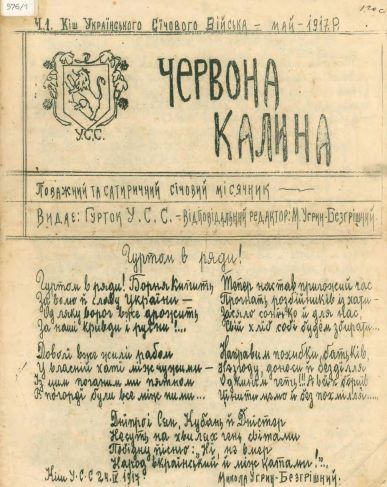 976/1
Ч.1. Кіш Українського Січового Війська – май – 1917 р.
У.С.С.
ЧЕРВОНА
КАЛИНА
Поважний та сатиричний січовий місячник
Видає: Гурток У.С.С. – Відповідальний редактор: М. Угрин-Безгрішний.
Гуртом в ряди!
Гуртом в ряди! Борня кипить
За волю й славу України –
Од ляку ворог вже дрожить
За наші кривди і руїни!...
Доволі вже жили рабом
У власній хаті між чужими –
З цим поганим пятном
В погорді були все між ними...
Тепер настав пригожий час
Прогнать розбійників із хати –
Засяло сонічко й для нас,
Свій хліб собі будем збирати...
Направим похибки батьків,
Незгоду, доноси й безділля
Дніпро і Сян, Кубань й Дністер
Несуть на хвилях ген світами
Побідну піснь: „Ні, не вмер
Народ український й між катами!"...
Кіш У.С.С. 24.IV 1917
Микола Угрин-Безгрішний.